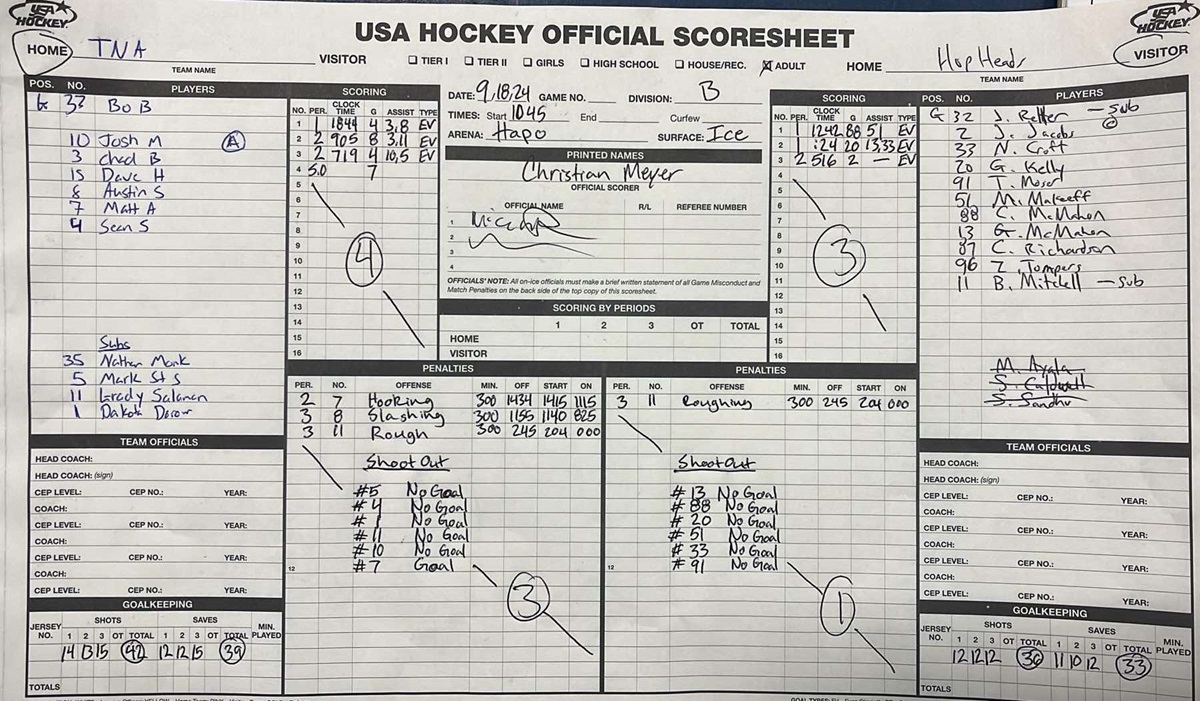 USA HOCKEY
USA HOCKEY OFFICIAL SCORESHEET
USA HOCKEY
HOME TNA VISITOR TIER I TIER II GIRLS HIGH SCHOOL HOUSE/REC. ADULT HOME Hop Heads VISITOR
TEAM NAME
TEAM NAME
POS. NO. PLAYERS
G 33 Bo B
10 Josh M A
3 Chad B
15 Dave H
8 Austin S
7 Matt A
4 Sean S
Subs
35 Nathan Monk
5 Mark St S
11 Grady Salonen
1 Dakota
SCORING
NO. PER. CLOCK TIME G ASSIST TYPE
1 1 1844 4 3,8 EV
2 2 905 8 3,11 EV
3 2 719 4 10,5 EV
4 S.O 7
5
6
7
8
9
10
11
12
13
14
15
16
4
DATE: 9,18,24 GAME NO. DIVISION: B
TIMES: Start 1045 End Curfew
ARENA: Hapo SURFACE: Ice
PRINTED NAMES
Christian Meyer
OFFICIAL SCORER
OFFICIAL NAME R/L REFEREE NUMBER
1
2
3
4
OFFICIALS' NOTE: All on-ice officials must make a brief written statement of all Game Misconduct and
Match Penalties on the back side of the top copy of this scoresheet.
SCORING BY PERIODS
1 2 3 OT TOTAL
HOME
VISITOR
SCORING
NO. PER. CLOCK TIME G ASSIST TYPE
1 1 1242 88 51 EV
2 1 :24 20 13,33 EV
3 2 516 2 — EV
4
5
6
7
8
9
10
11
12
13
14
15
16
3
POS. NO. PLAYERS
G 32 J. Retter — Sub
2 J. Jacobs C
33 N. Croft
20 G. Kelly
91 T. Moser
51 M. Makeeff
88 C. McMahon
13 G. McMahon
87 C. Richardson
96 Z. Tompers
11 B. Mitchell — Sub
M. Ayala
S. Caldwell
S. Sandhu
PENALTIES
PER. NO. OFFENSE MIN. OFF START ON
2 7 Hooking 300 1434 1415 1115
3 8 Slashing 300 1155 1140 825
3 11 Rough 300 245 204 000
Shoot Out
#5 No Goal
#4 No Goal
#1 No Goal
#11 No Goal
#10 No Goal
#7 Goal
12
3
PENALTIES
PER. NO. OFFENSE MIN. OFF START ON
3 11 Roughing 300 245 204 000
Shoot Out
#13 No Goal
#88 No Goal
#20 No Goal
#51 No Goal
#33 No Goal
#91 No Goal
12
1
TEAM OFFICIALS
HEAD COACH:
HEAD COACH: (sign)
CEP LEVEL: CEP NO.: YEAR:
COACH:
CEP LEVEL: CEP NO.: YEAR:
COACH:
CEP LEVEL: CEP NO.: YEAR:
COACH:
CEP LEVEL: CEP NO.: YEAR:
GOALKEEPING
JERSEY NO. SHOTS SAVES MIN. PLAYED
1 2 3 OT TOTAL 1 2 3 OT TOTAL
14 13 15 42 12 12 15 39
TOTALS
TEAM OFFICIALS
HEAD COACH:
HEAD COACH: (sign)
CEP LEVEL: CEP NO.: YEAR:
COACH:
CEP LEVEL: CEP NO.: YEAR:
COACH:
CEP LEVEL: CEP NO.: YEAR:
COACH:
CEP LEVEL: CEP NO.: YEAR:
GOALKEEPING
JERSEY NO. SHOTS SAVES MIN. PLAYED
1 2 3 OT TOTAL 1 2 3 OT TOTAL
12 12 12 36 11 10 12 33
TOTALS